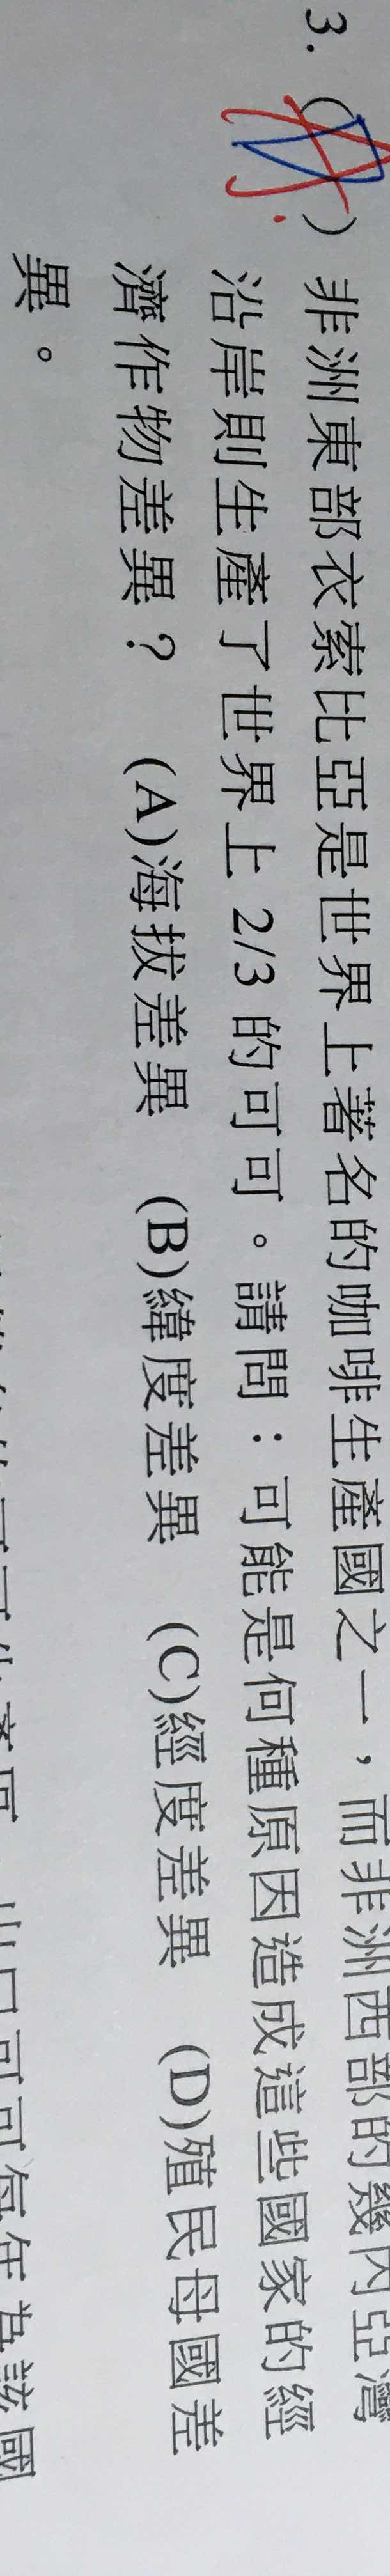 3. ( ) 非洲東部衣索比亞是世界上著名的咖啡生產國之一，而非洲西部的幾內亞灣
沿岸則生產了世界上 2/3 的可可。請問：可能是何種原因造成這些國家的經
濟作物差異？ (A)海拔差異 (B)緯度差異 (C)經度差異 (D)殖民母國差
異。
出口可可每年為該國